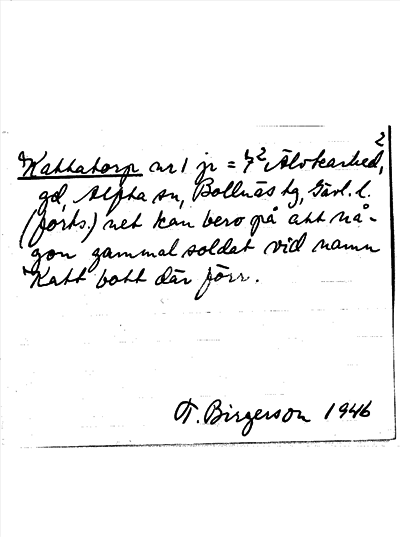 2
Kattatorp nr 1 jr = 7² Älvkarhed,
gd, Alfta sn, Bollnäs tg, Gävl. l.
(forts.) net kan bero på att nå-
gon gammal soldat vid namn
Katt bott där förr.
T. Birgerson 1946